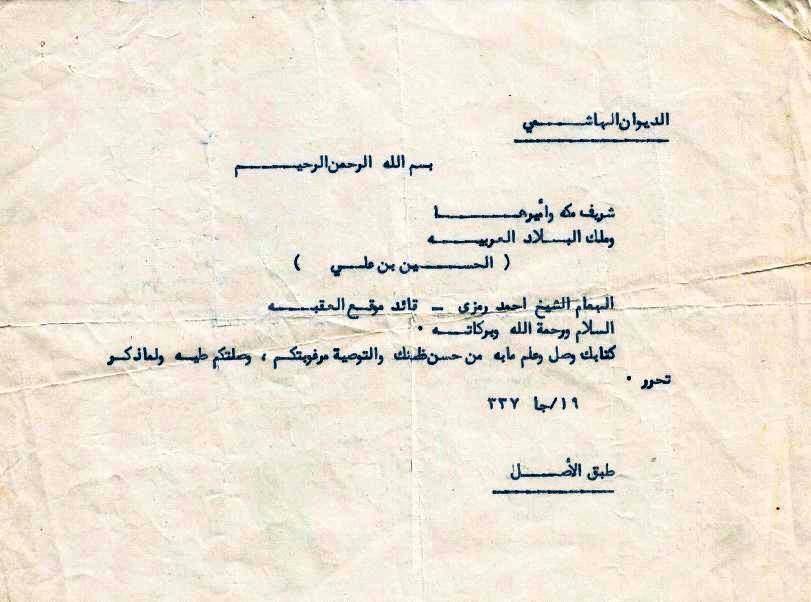 الديوان الهاشمي
بسم الله الرحمن الرحيم
شريف مكه وأميرها
وملك البلاد العربيه
( الحسين بن علي )
الهمام الشيخ احمد رمزى - قائد موقع العقبه
السلام ورحمة الله وبركاته .
كتابك وصل وعلم مابه من حسن ظنك والتوصية مرغوبتكم ، وصلتكم طيه ولماذكر
تحرر .
١٩/جا ٣٣٧
طبق الأصل